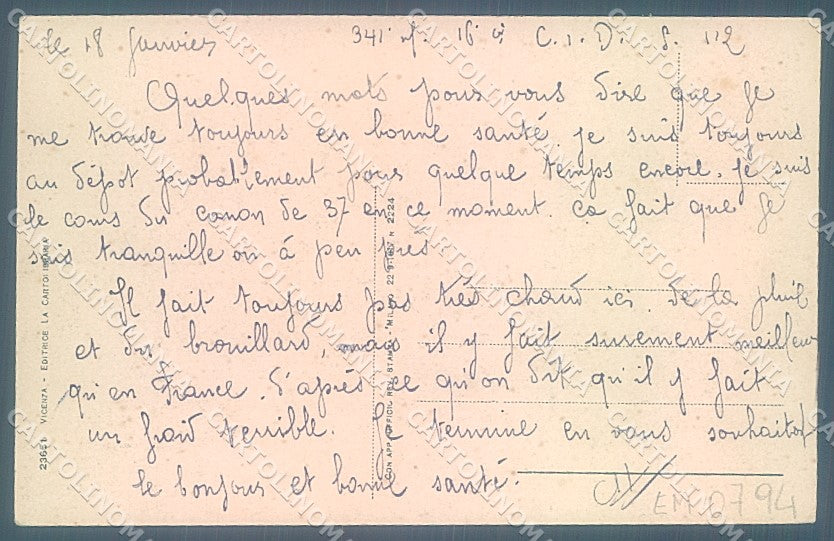 le 18 Janvier 341 16 C. I. D. S. 112
Quelques mots pour vous dire que Je
me trouve toujours en bonne santé je suis toujours
au dépot probablement pour quelque temps encore. Je suis
le cours du canon de 37 en ce moment. ça fait que Je
suis tranquille ou à peu près
Il fait toujours pas très chaud ici. de la pluie
et du brouillard, mais il y fait surement meilleur
qu'en France. d'après ce qu'on dit qu'il y fait
un froid terrible. Je termine en vous souhaitant
le bonjour et bonne santé.
EM 0794
23661 VICENZA - EDITRICE LA CARTOLIBRARIA
CON APP. UFFICIO REV. STAMPA - MILANO 22-9-1917 N 2224
CARTOLINOMANIA